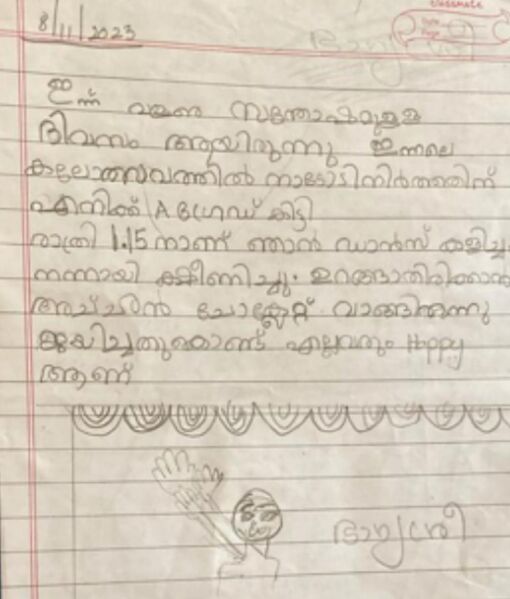 classmate
Date
Page
8/11/2023
ഇന്ന് വളരെ സന്തോഷമുള്ള
ദിവസം ആയിരുന്നു ഇന്നലെ
കലോത്സവത്തിൽ നാടോടിനിർത്തത്തിന്
എനിക്ക് A ഗ്രേഡ് കിട്ടി
രാത്രി 1.15 നാണ് ഞാൻ ഡാൻസ് കളിച്ച
നന്നായി ക്ഷീണിച്ചു. ഉറങ്ങാതിരിക്കാൻ
അച്ഛൻ ചോക്ലേറ്റ് വാങ്ങിതന്നു
ജയിച്ചതുകൊണ്ട് എല്ലവരും Happy
ആണ്
ഭാഗ്യശ്രീ